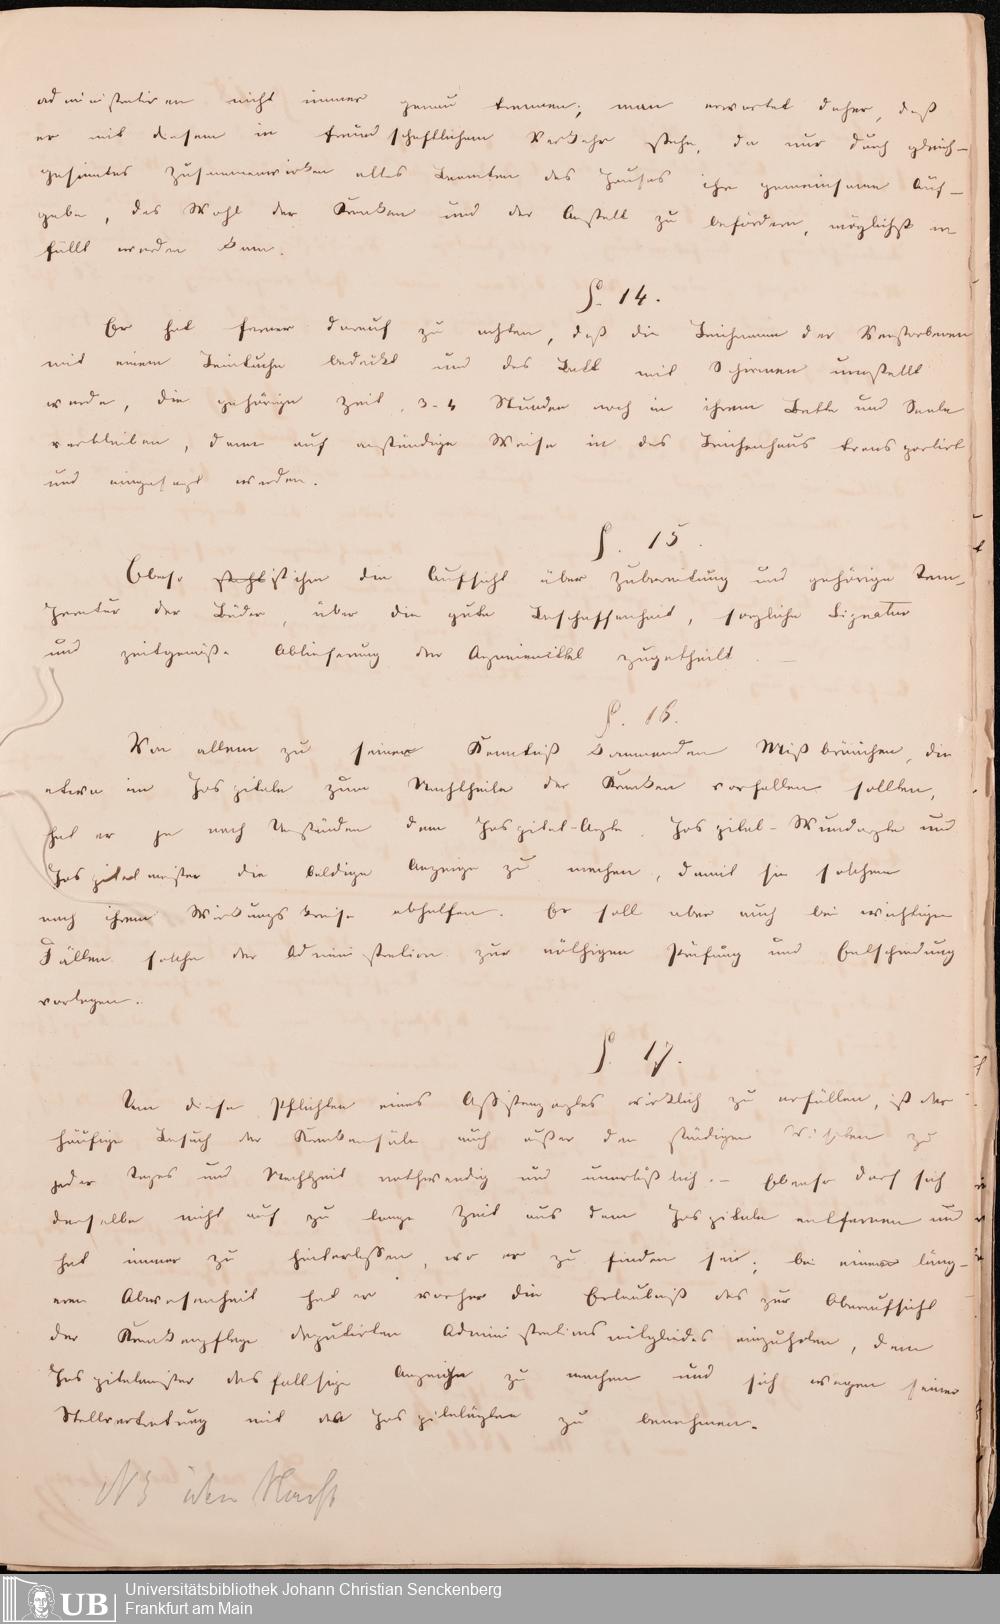 administrativen nicht immer genau trennen; man erwartet daher, daß
er mit diesem in freundschaftlichem Verkehr stehe, da nur durch gleich-
gesinntes Zusammenwirken aller Beamten des Hauses ihre gemeinsame Auf-
gabe, das Wohl der Kranken und der Anstalt zu befördern, möglichst er-
füllt werden kann.
§. 14.
Er hat ferner darauf zu achten, daß die Leichname der Verstorbenen
mit einem Leintuche bedeckt und das Bett mit Schirmen umstellt
werde, die gehörige Zeit, 3-4 Stunden noch in ihrem Bette und Saale
verbleiben, dann auf anständige Weise in das Leichenhaus transportirt
und eingesargt werden.
§. 15.
Ebenso steht ist ihm die Aufsicht über Zubereitung und gehörige Tem-
peratur der Bäder, über die gute Beschaffenheit, sorgliche Signatur
und zeitgemäße Ablieferung der Arzneimittel zugetheilt.
§. 16.
Von allem zu seiner Kenntniß kommenden Mißbräuchen, die
etwa im Hospitale zum Nachtheile der Kranken vorfallen sollten,
hat er je nach Umständen dem Hospital-Arzte, Hospital-Wundarzte und
Hospitalmeister die baldige Anzeige zu machen, damit sie solchem
nach ihrem Wirkungskreise abhelfen. Er soll aber auch bei wichtigen
Fällen solche der Administration zur nöthigen Prüfung und Entscheidung
vorlegen.
§. 17.
Um diese Pflichten eines Assistenzarztes wirklich zu erfüllen, ist der
häufige Besuch der Krankensäle auch außer den ständigen Visiten zu
jeder Tages und Nachtzeit nothwendig und unerläßlich. - Ebenso darf sich
derselbe nicht auf zu lange Zeit aus dem Hospitale entfernen und
hat immer zu hinterlassen, wo er zu finden sei; bei einer läng-
eren Abwesenheit hat er vorher die Erlaubniß des zur Oberaufsicht
der Krankenpflege deputirten Administrationsmitgliedes einzuholen, dem
Hospitalmeister desfallsige Anzeige zu machen und sich wegen seiner
Stellvertretung mit den Hospitalärzten zu benehmen.
Universitätsbibliothek Johann Christian Senckenberg
UB Frankfurt am Main